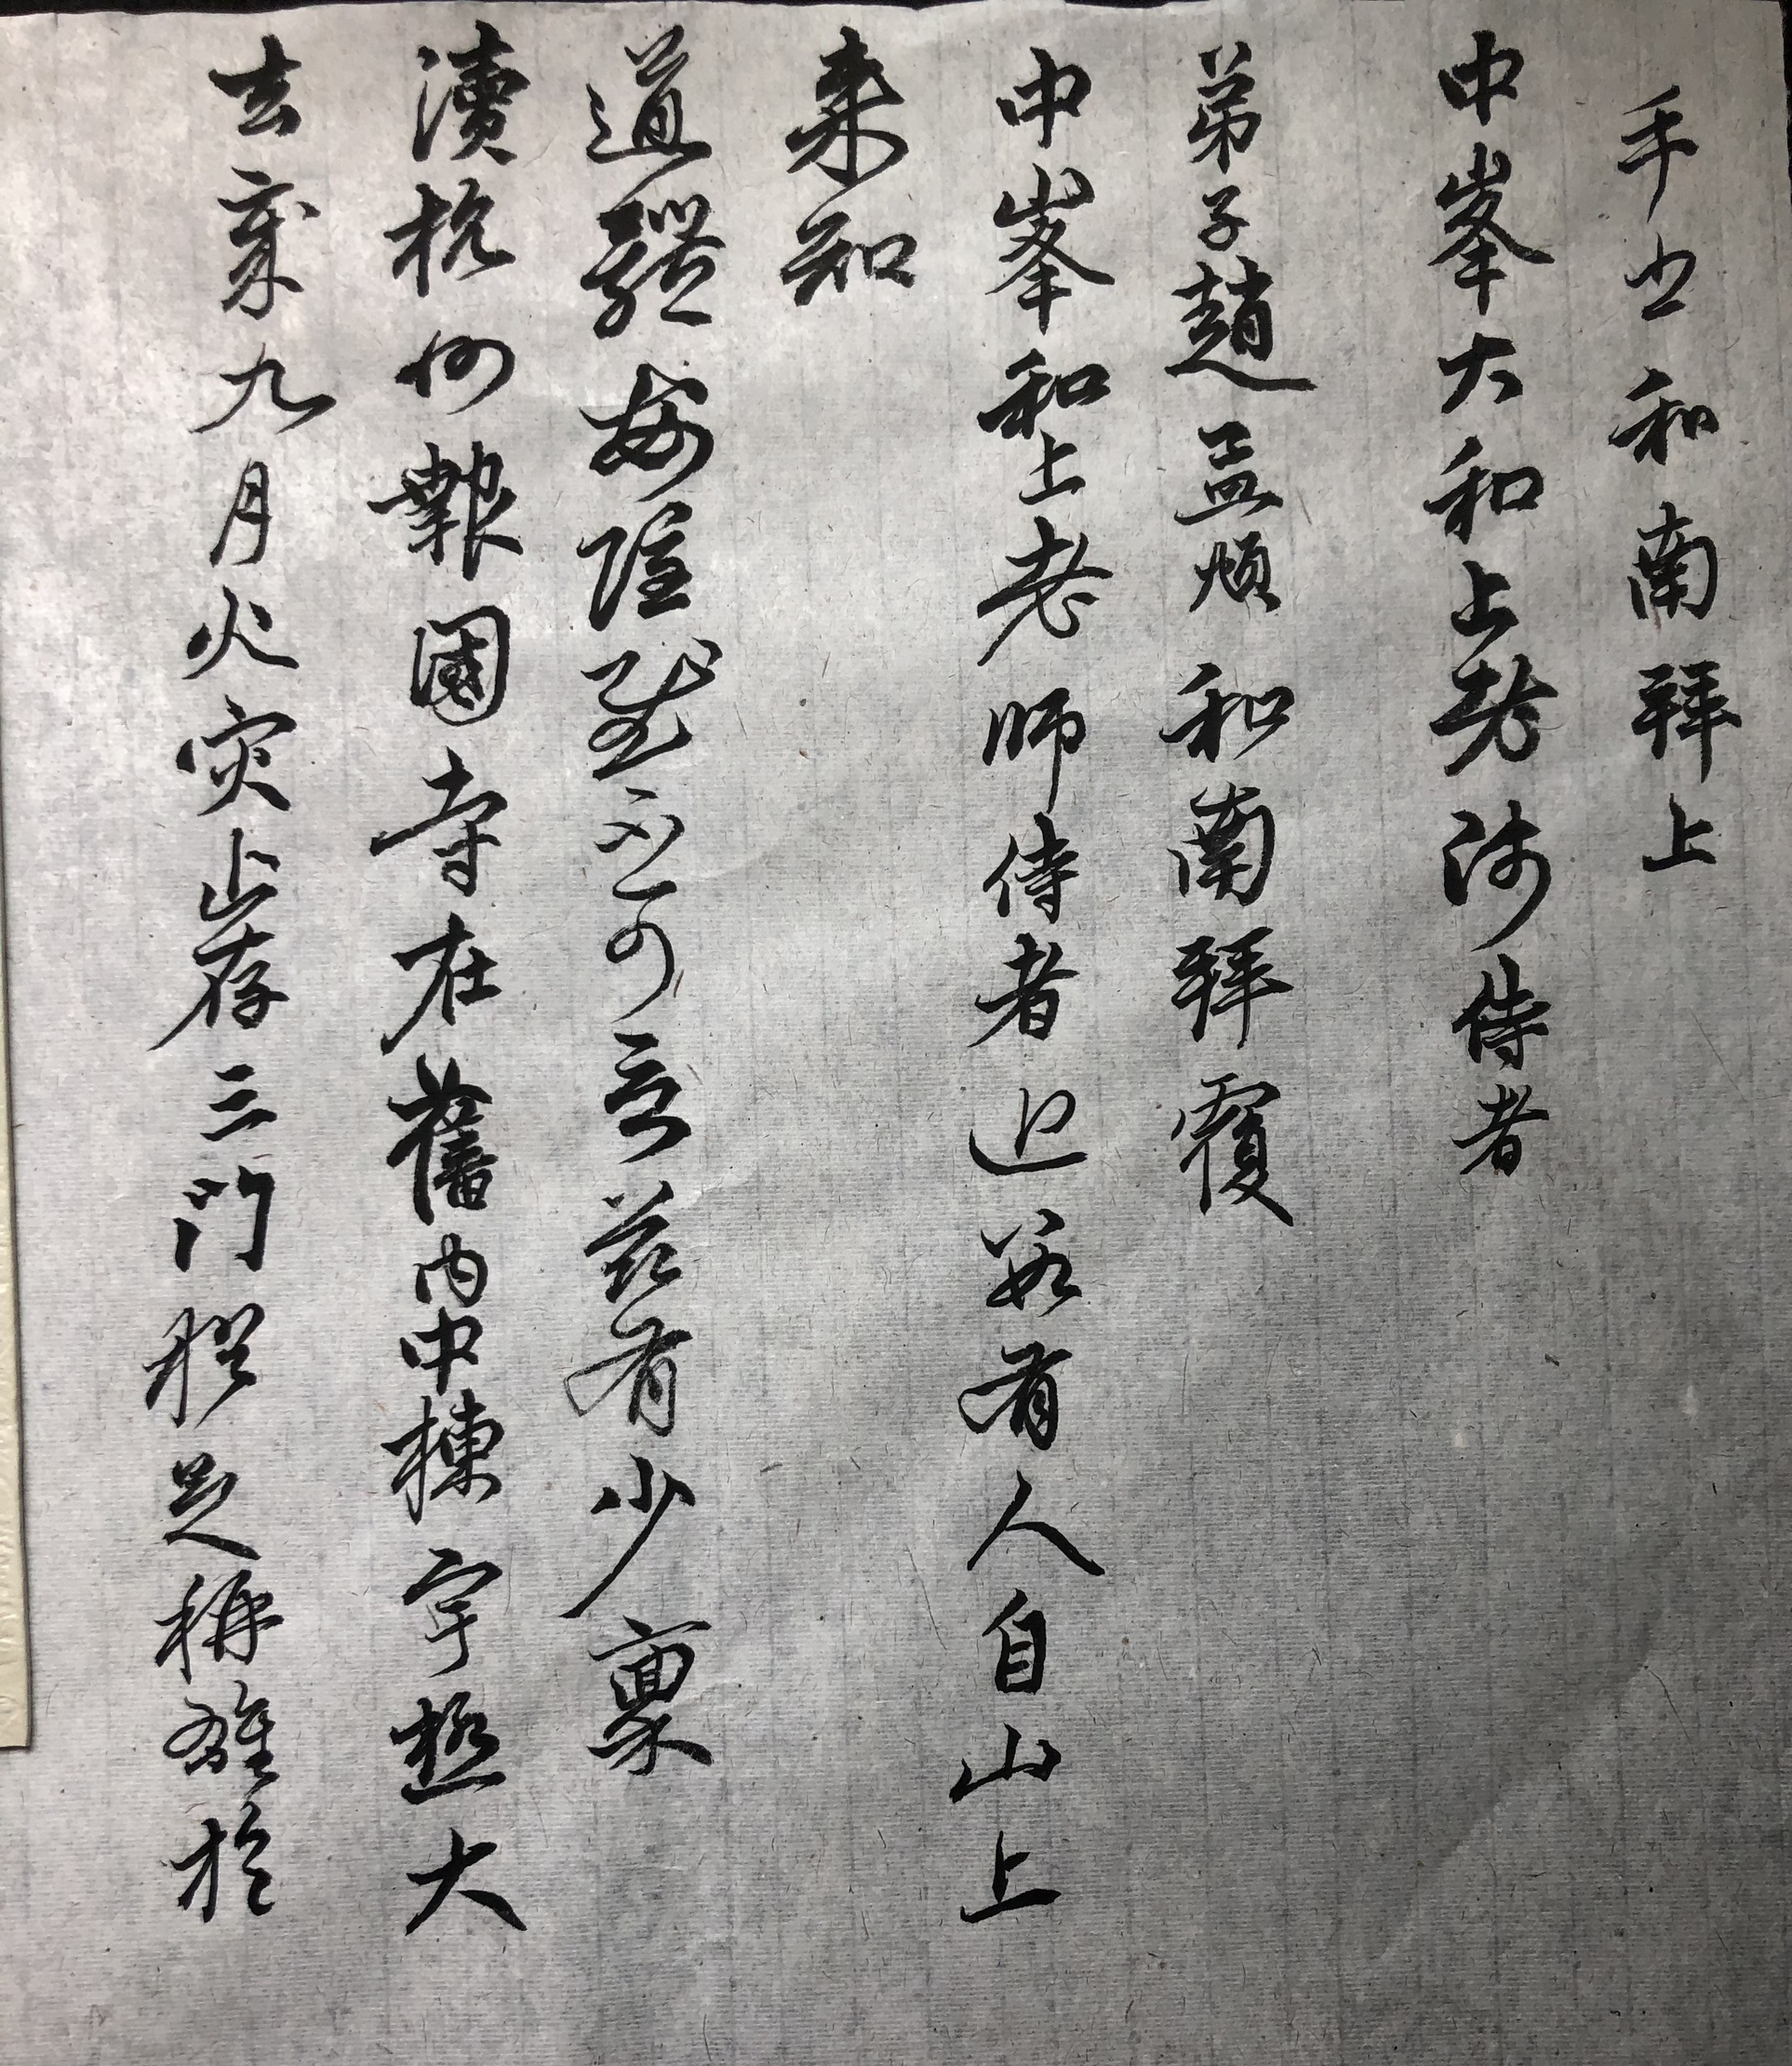 手書和南拜上
中峯大和上老師侍者
弟子趙孟頫和南拜覆
中峯和上老師侍者近數有人自山上
來知
道體安隱慰不可言茲有少稟
瀆杭州報國寺在舊內中棟宇極大
去歲九月火灾止存三門足稱雄於